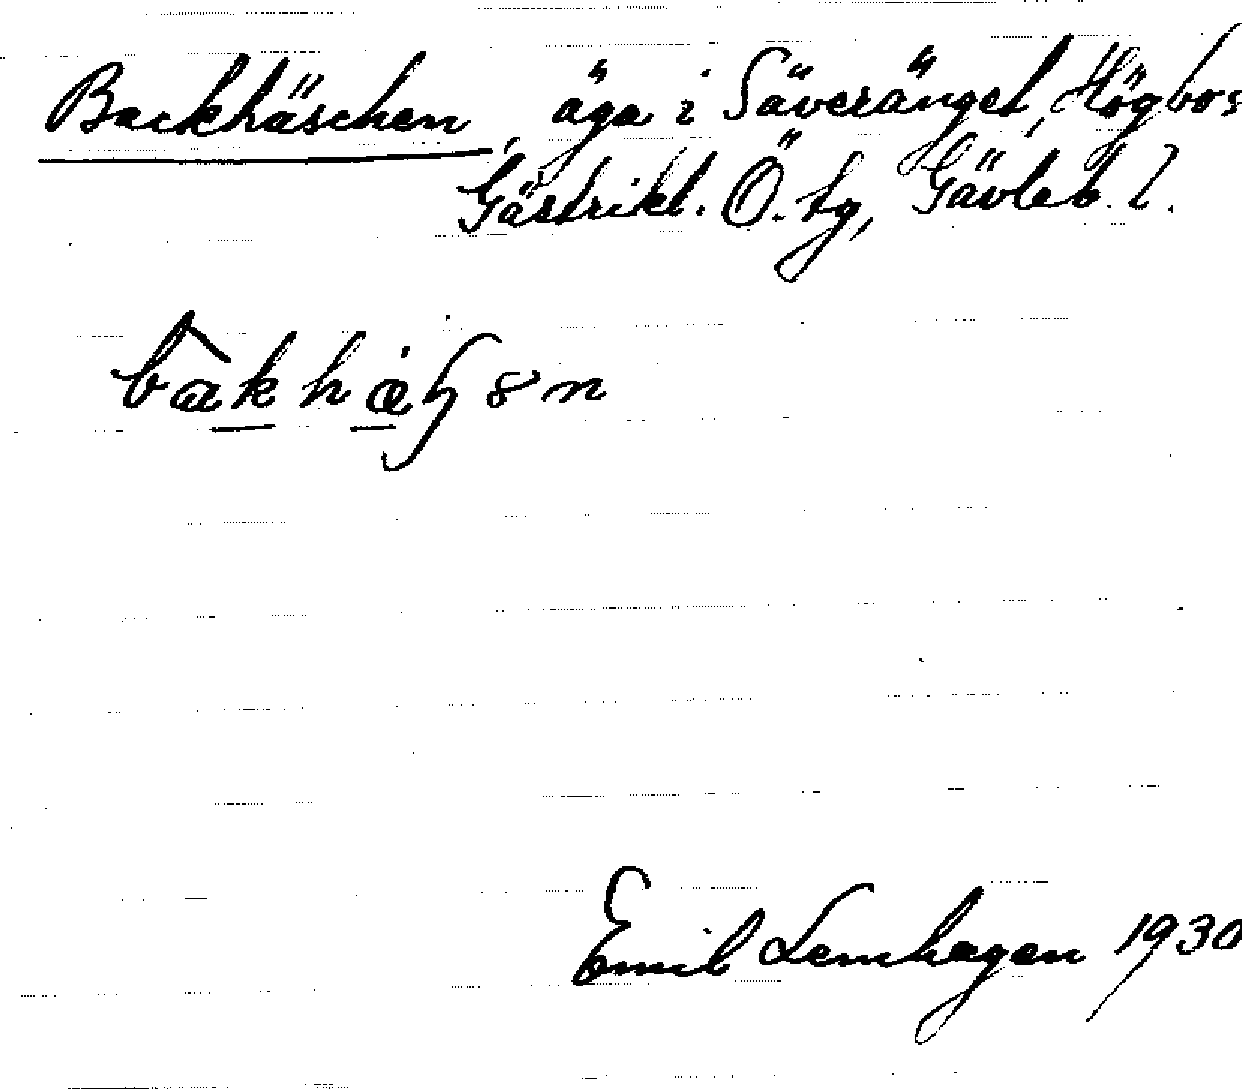 Backhäschen, äga i Säverängel, Högbos
Gästrikl. Ö. tg, Gävleb. l.
Emil Lemhagen 1930